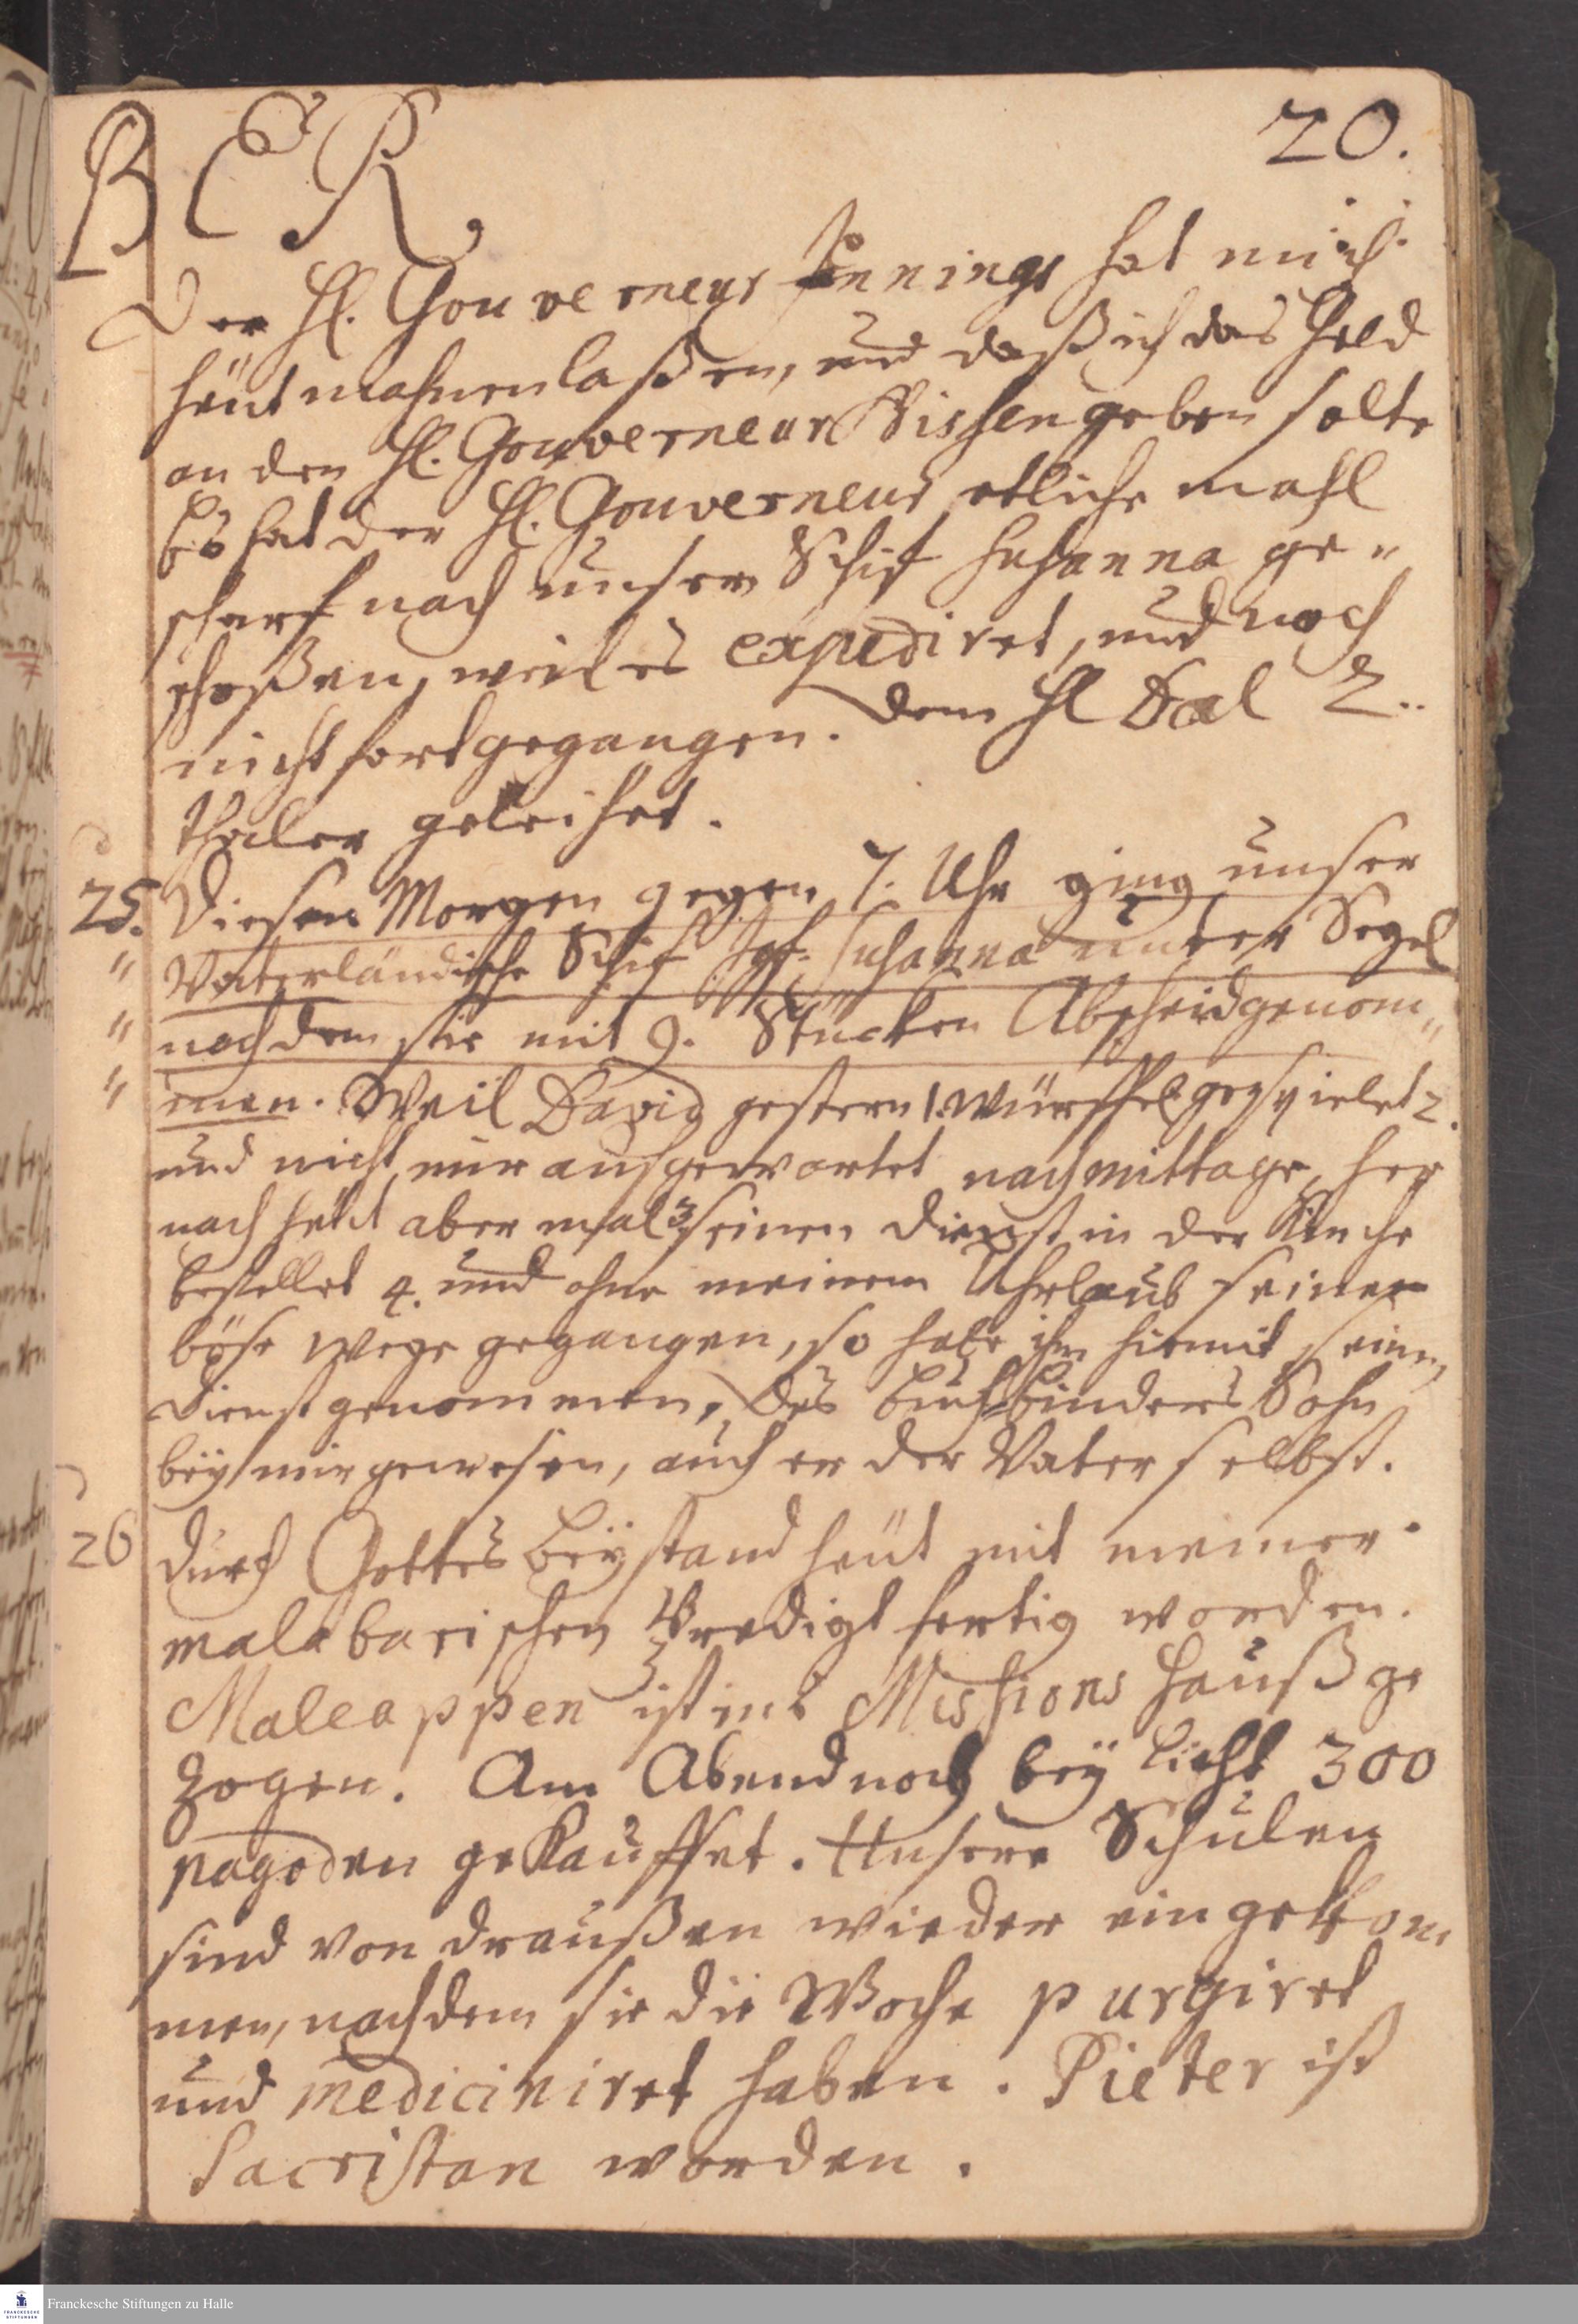 BER.
20.
Der Hl. Gouverneur Jennings hat mich
heut mahnen laßen, und daß ich das Geld
an den Hl. Gouverneur Nissen geben solte
Es hat der Hl. Gouverneur etliche mahl
scharf nach unsern Schif Susanna ge„
schoßen, weil es expediret, und noch
nicht fortgegangen. dem Hl Dal 2..
thaler geleihet.
25. Diesen Morgen gegen 7. Uhr ging unser
„ Vaterländische Schif Jgf. Susanna unter Segel
„ nachdem sie mit 9. Stücken Abscheid genom„
„ men. Weil David gestern 1. würffel gespielet 2.
und nicht mir aufgewartet nachmittage, her
nach heut abermal 3 seinen Dienst in der Kirche
bestellet 4. und ohne meinem Uhrlaub seiner
böse Wege gegangen, so habe ihm hiemit seinen
Dienst genommen, Des buchbinders Sohn
beÿ mir gewesen, auch er der Vater selbst.
26 Durch Gottes beÿstand heut mit meiner
malabarischen Predigt fertig worden.
Maleappen ist ins Missions Hauß ge
zogen. Am Abend noch beÿ licht 300
pagoden gekauffet. Unsere Schulen
sind von draußen wieder eingekom,
men, nachdem sie die Woche purgiret
und mediciniret haben. Pieter ist
Sacristan worden.
Franckesche Stiftungen zu Halle